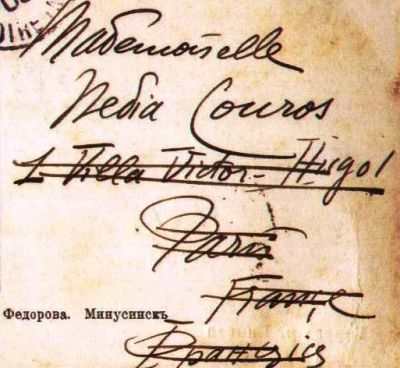 Mademoiselle
Nedia Couros
1 Villa Victor-Hugo
Paris
France
Федорова. Минусинскъ
Франция